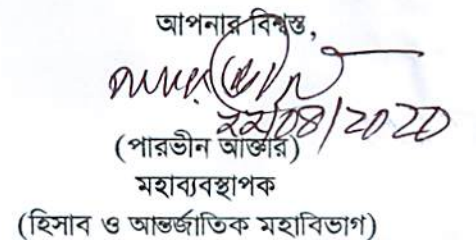 আপনার বিশ্বস্ত,
২২/০৪/2020
(পারভীন আক্তার)
মহাব্যবস্থাপক
(হিসাব ও আন্তর্জাতিক মহাবিভাগ)